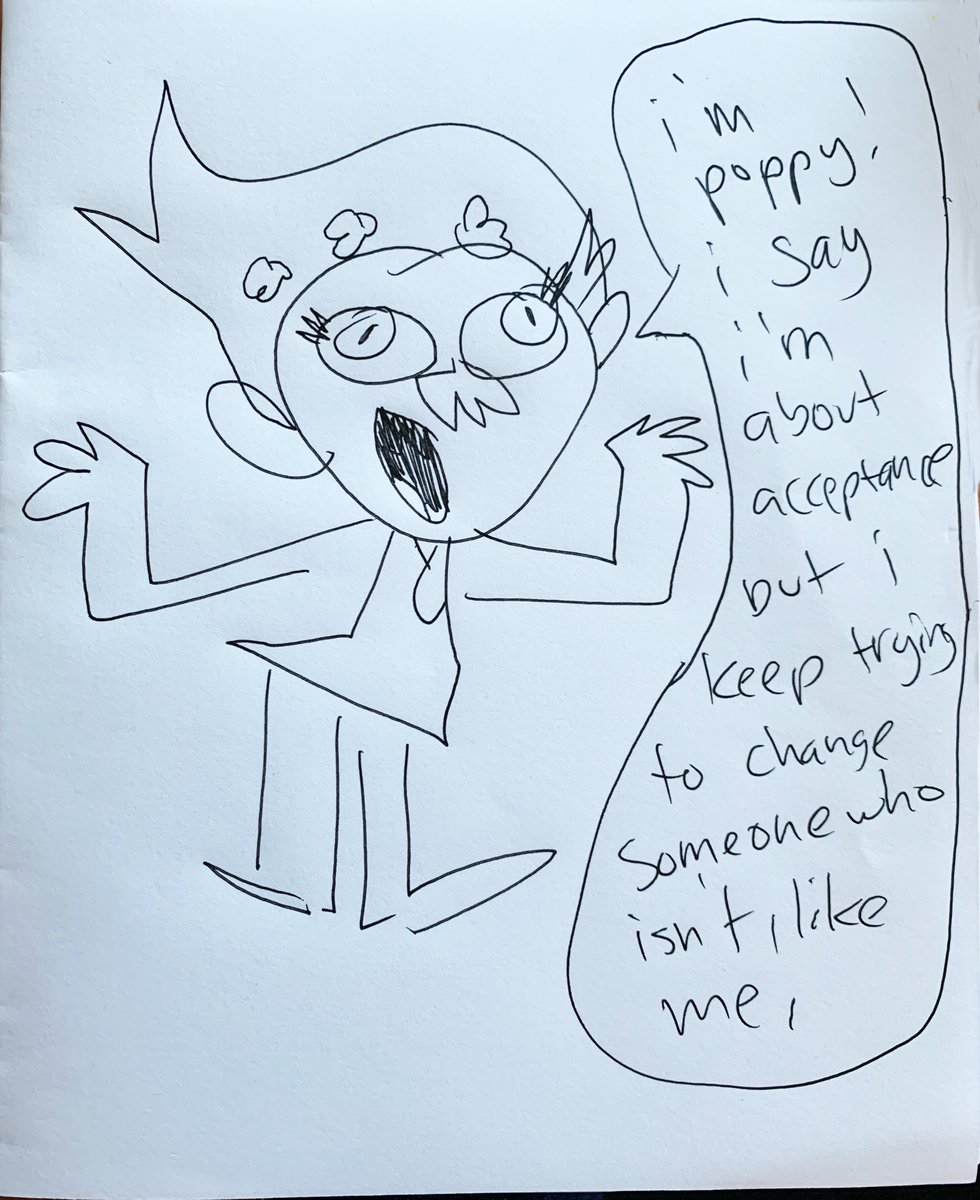 i'm
poppy!
i say
i'm
about
acceptance
but i
keep trying
to change
someone who
isn't, like
me,